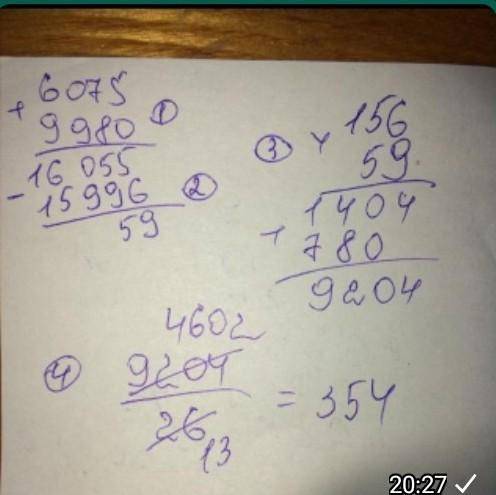 + 6075
9980 ①
16 055
- 15996 ②
59
③ × 156
59
1404
+ 780
9204
4602
④ 9204 = 354
26
13
20:27 ✓